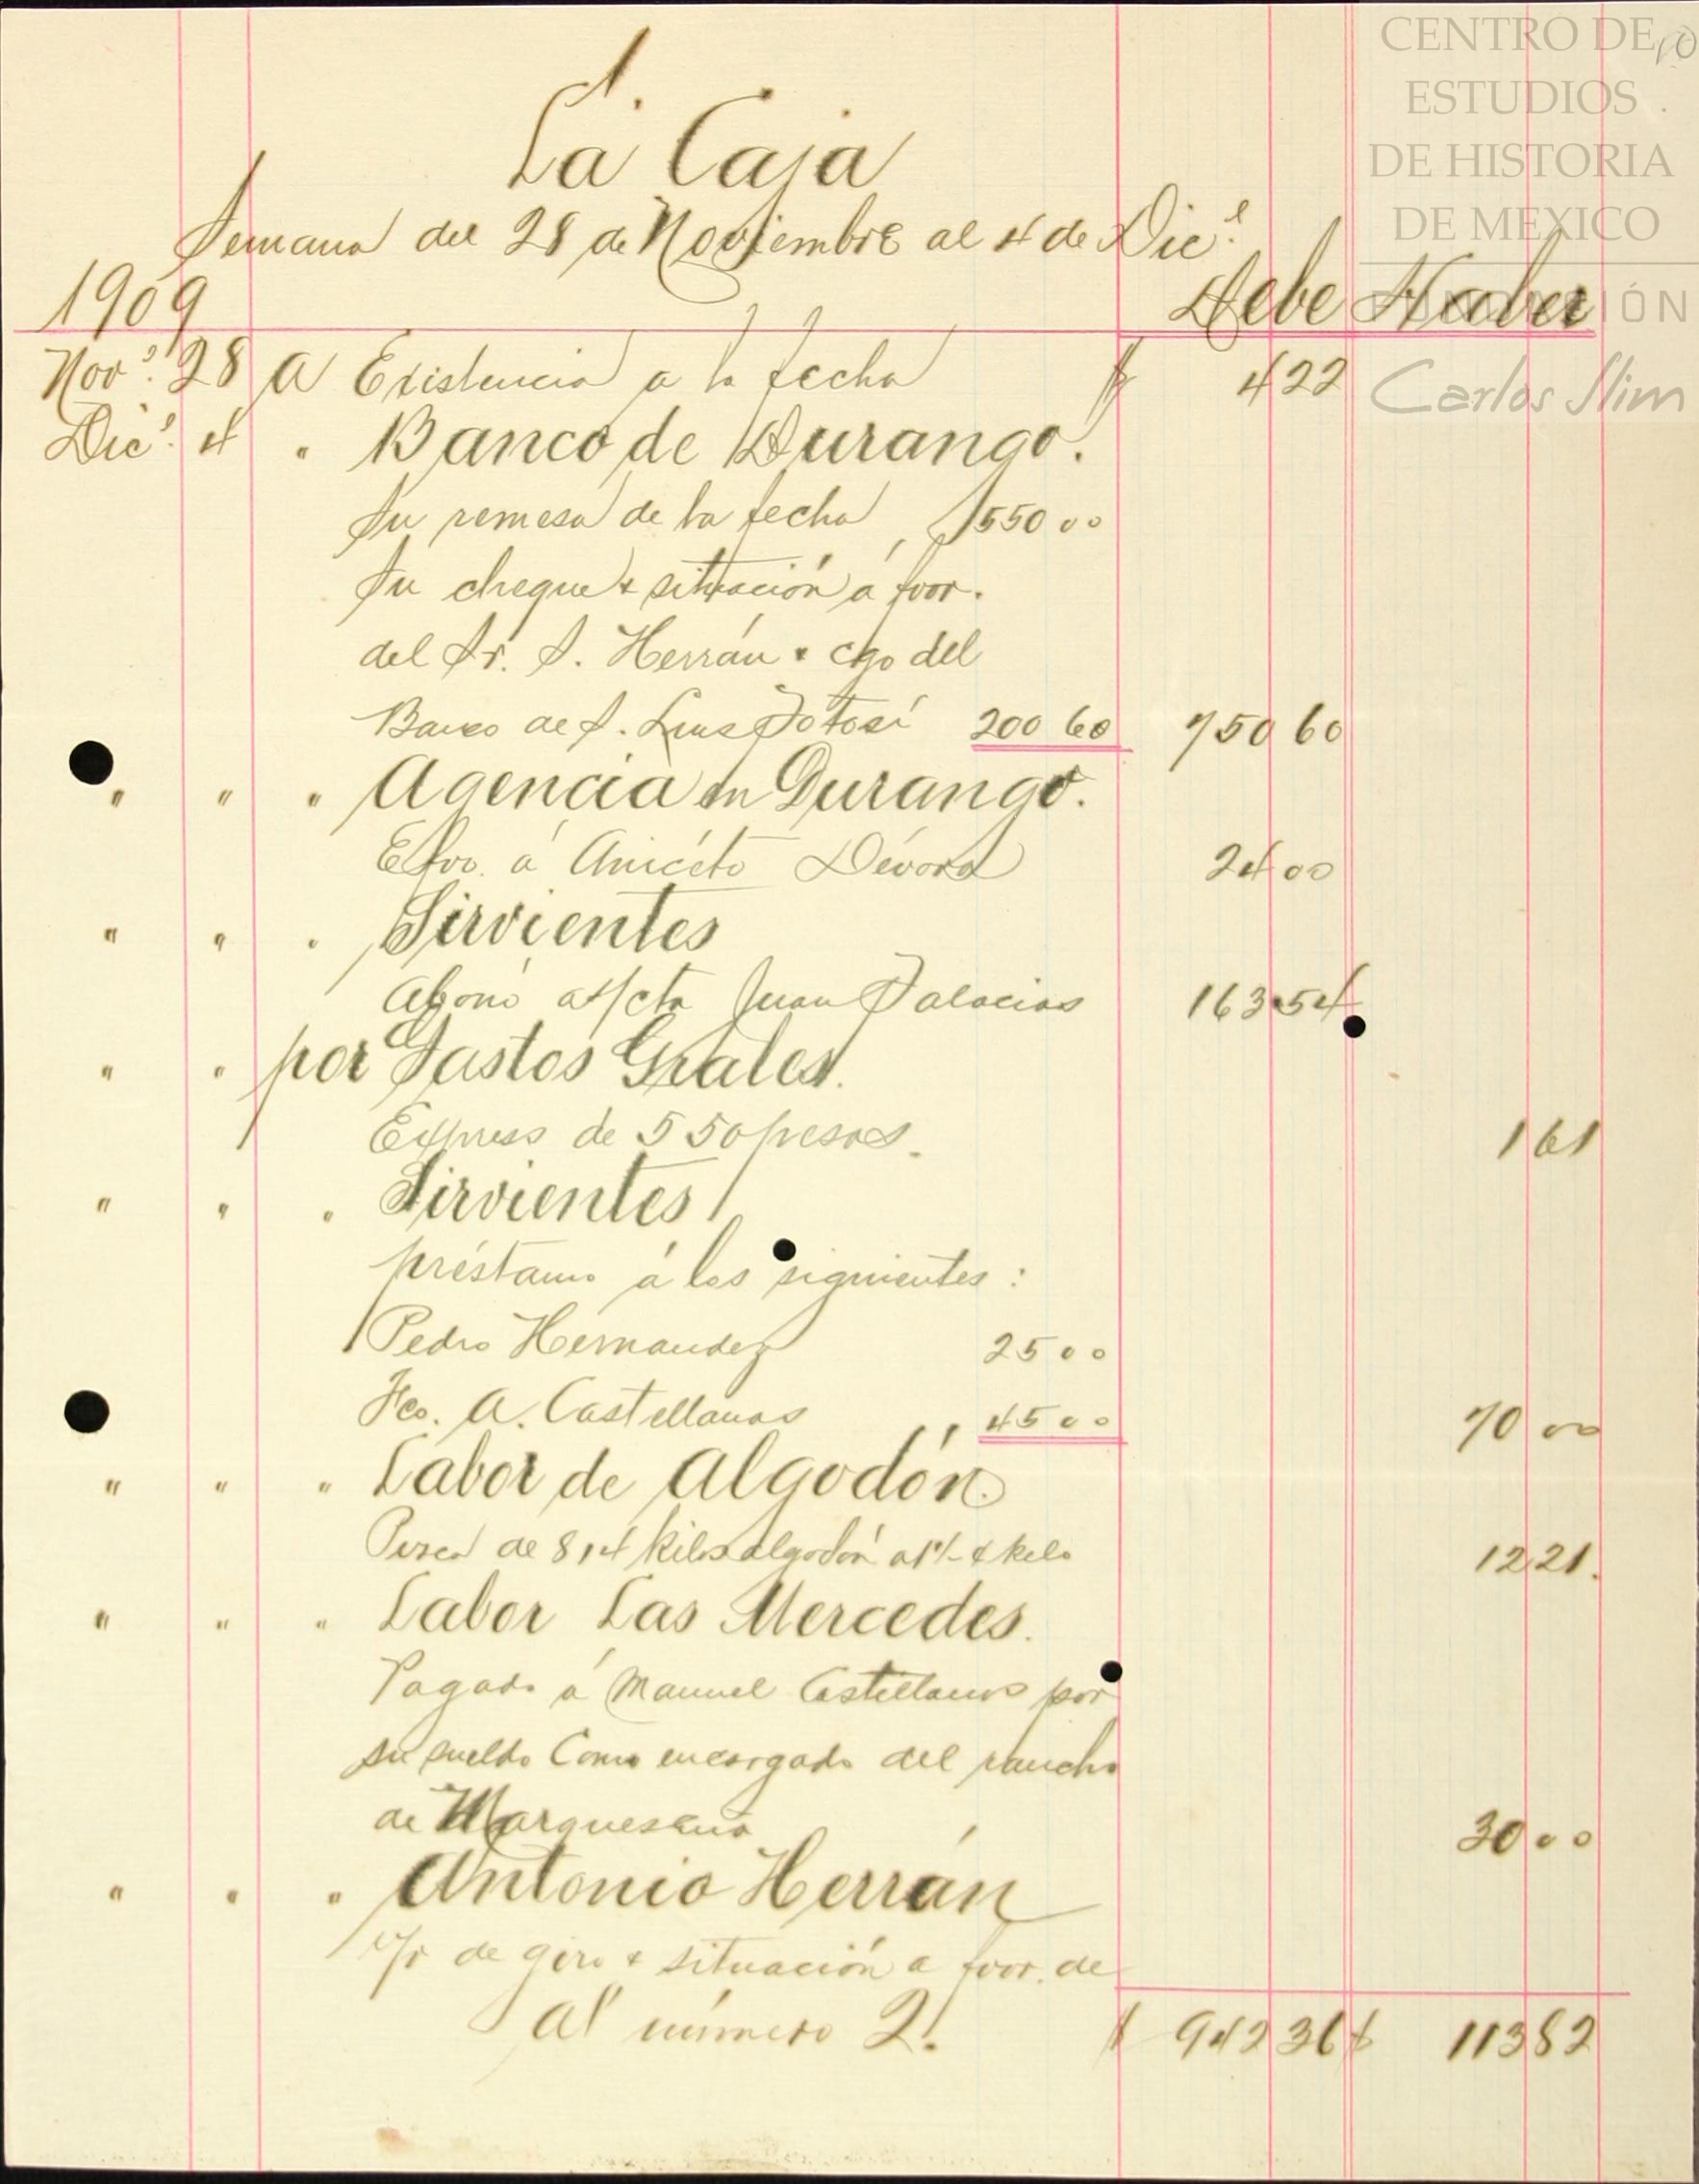 CENTRO DE
ESTUDIOS
DE HISTORIA
DE MEXICO
FUNDACIÓN
Carlos Slim
10
1.
La Caja
Semana del 28 de Noviembre al 4 de Dice.
1909 Debe Haber
Nove. 28 a Existencia a la fecha $ 4 22
Dice. 4 " Banco de Durango.
Su remesa de la fecha $ 550 00
Su cheque y situación á fvor.
del Sr. S. Herrán cgo del
Banco de S. Luis Potosí 200 60 750 60
" " " Agencia en Durango.
Efvo. á Aniceto Dévora 24 00
" " " Sirvientes
Abonó a s/cta Juan Palacios 163 54
" " por Gastos Grales.
Express de 550 pesos. 1 61
" " " Sirvientes
préstamo á los siguientes :
Pedro Hernandez 25 00
Fco. A. Castellanos " 45 00 70 00
" " " Labor de Algodón.
Pisca de 814 kilos algodón a 1½ ¢ kilo 12 21.
" " " Labor Las Mercedes.
Pagado á Manuel Castellanos por
su sueldo Como encargado del rancho
de Marqueseña 30 00
" " " Antonio Herrán
de giro y situación a fvor. de
Al número 2. $ 942 36 $ 113 82